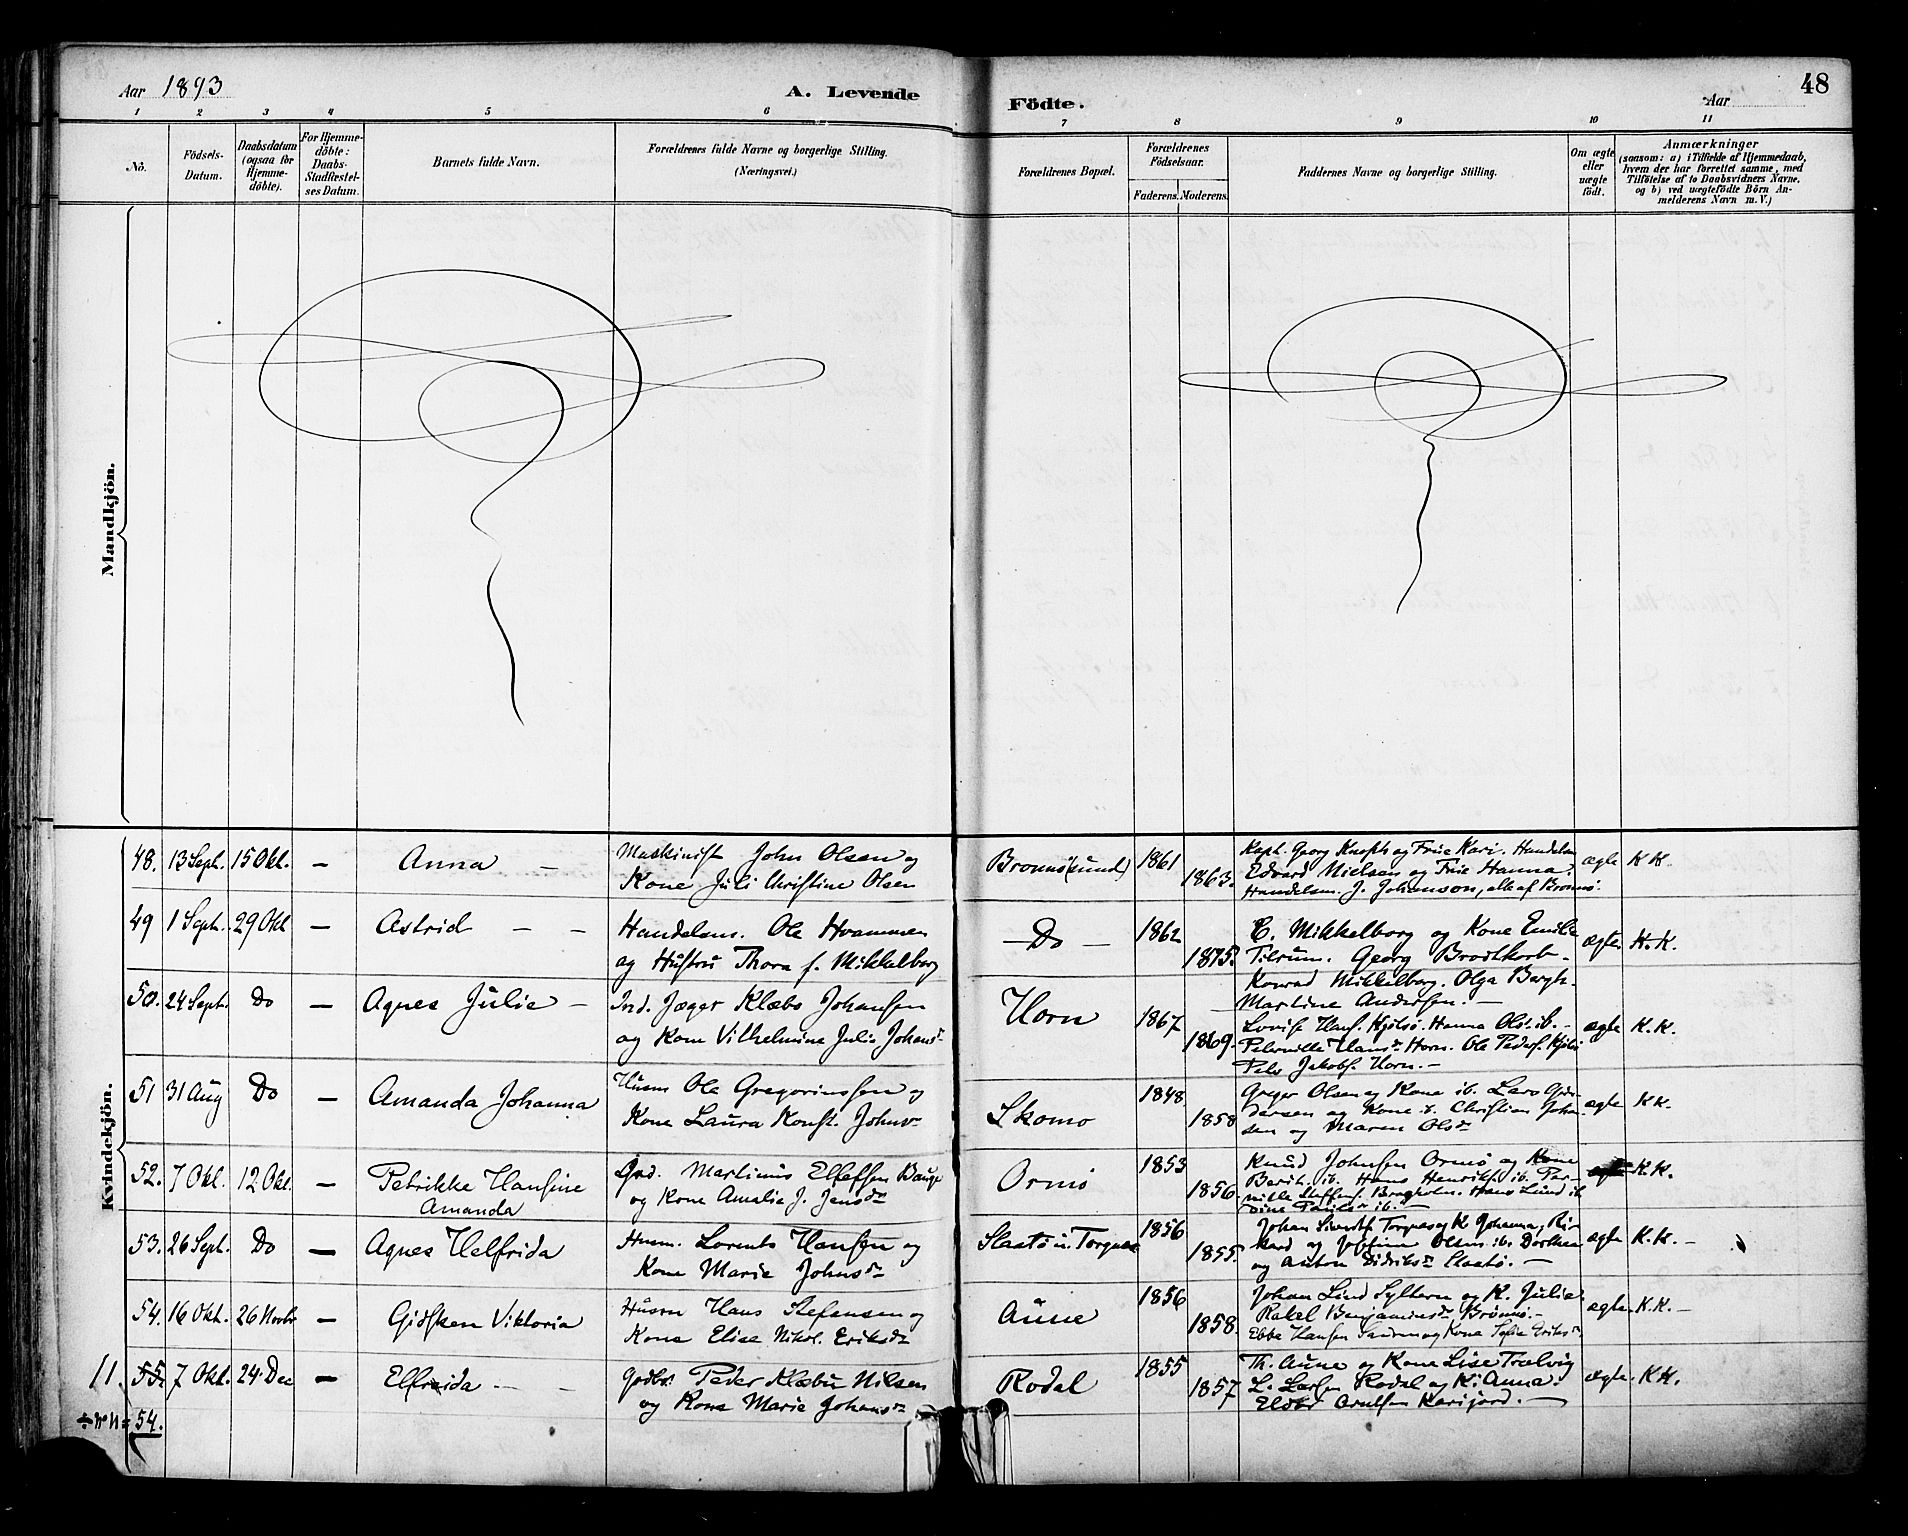 Aar 1893
A. Levende
Födte.
Aar
48
1 2 3 4 5 6 7 8 9 10 11
No.
Födsels-Datum.
Daabsdatum (ogsaa for Hjemme-döbte).
For Hjemme-döbte: Daabs-Stadfæstel-ses Datum.
Barnets fulde Navn.
Forældrenes fulde Navne og borgerlige Stilling. (Næringsvei.)
Forældrenes Bopæl.
Forældrenes Födselsaar.
Faderens. Moderens.
Faddernes Navne og borgerlige Stilling.
Om ægte eller uægte födt.
Anmærkninger
(saasom: a) i Tilfælde af Hjemmedaab,
hvem der har forrettet samme, med
Tilföielse af to Daabsvidners Navne,
og b) ved uægtefödte Börn An-
melderens Navn m. V.)
Mandkjön.
Kvindekjön.
48. 13 Sept. 15 Okt. — Anna — Maskinist John Olsen og
Kone Juli Christine Olsen
Brønnø(sund) 1861 1863.
Kapt. Georg Knoph og Frue Kari. Handelsm
Edvard Nielsen og Frue Hanna.
Handelsm. J. Johanson, alle af Brønnø.
ægte K K.
49 1 Sept. 29 Okt — Astrid — — Handelsm. Ole Hvammen
og Hustru Thora f. Mikkelborg
— Do — 1862 1875.
E. Mikkelborg og Kone Emilie
Tilrum. Georg Brodtkorb -
Konrad Mikkelborg. Olga Bergh.
Martine Andersen. —
ægte. K.K.
50. 24 Sept. Do — Agnes Julie — Ind. Jæger Klæbo Johansen
og Kone Vilhelmine Julie Johansd.
Horn 1867 1869.
Lovise Hans. Kjølsø. Hanna Ols. ib. -
Pernille Hansd. Horn. Ole Peders. Kjølsø
Peder Jakobs. Horn. —
ægte K.K.
51 31 Aug Do — Amanda Johanna Husm Ole Gregoriussen og
Kone Laura Konst. Johns
Skomo 1848. 1858
Greger Olsen og Kone ib. Lars
og Kone ib. Christian Johan-
sen og Maren Olsdr
ægte K K.
52. 7 Okt. 12 Okt. — Petrikke Hansine
Amanda
Martinus Elleffsen Bauge
og Kone Amalia J. Jensdr
Ormø 1853 1856.
Knud Johnsen Ormø og Kone
Berit. ib. Hans Henriks. ib. Per-
nille Steffens. Hans Lund ib
ægte K.K.
53. 26 Sept. Do — Agnes Helfrida Husm. Lorents Hansen og
Kone Maria Johnsdr
Slaatø u. Torgnes 1856 1855.
Johan Torgnes og K Johanna, Ri-
kard og Josefine Olsen ib. Dorthea
og Anton Didriksdr Slaatø. —
ægte K.K. —
54. 16 Okt. 26 Novbr — Gidsken Viktoria Husm Hans Stefensen og
Kone Elise Nikol. Eriksdr
Aune 1856 1858.
Johan Lind Sylteren og K. Julie.
Rakel Benjaminsdr Brønnø. —
Ebbe Hansen og Kone Sofie Eriks.
ægte. K.K. —
11. 55. 7 Okt. 24. Dec — Elfrida — — Gdbr. Peder Klæbu Nilsen
og Kone Marie Johansdr
Rodal 1855 1857
Th. Aune og Kone Lise Trælvig
L. Larsen Rodal og K. Anna.
Arntsen Karifjord. —
ægte. K K.
÷ No 11 = 54.